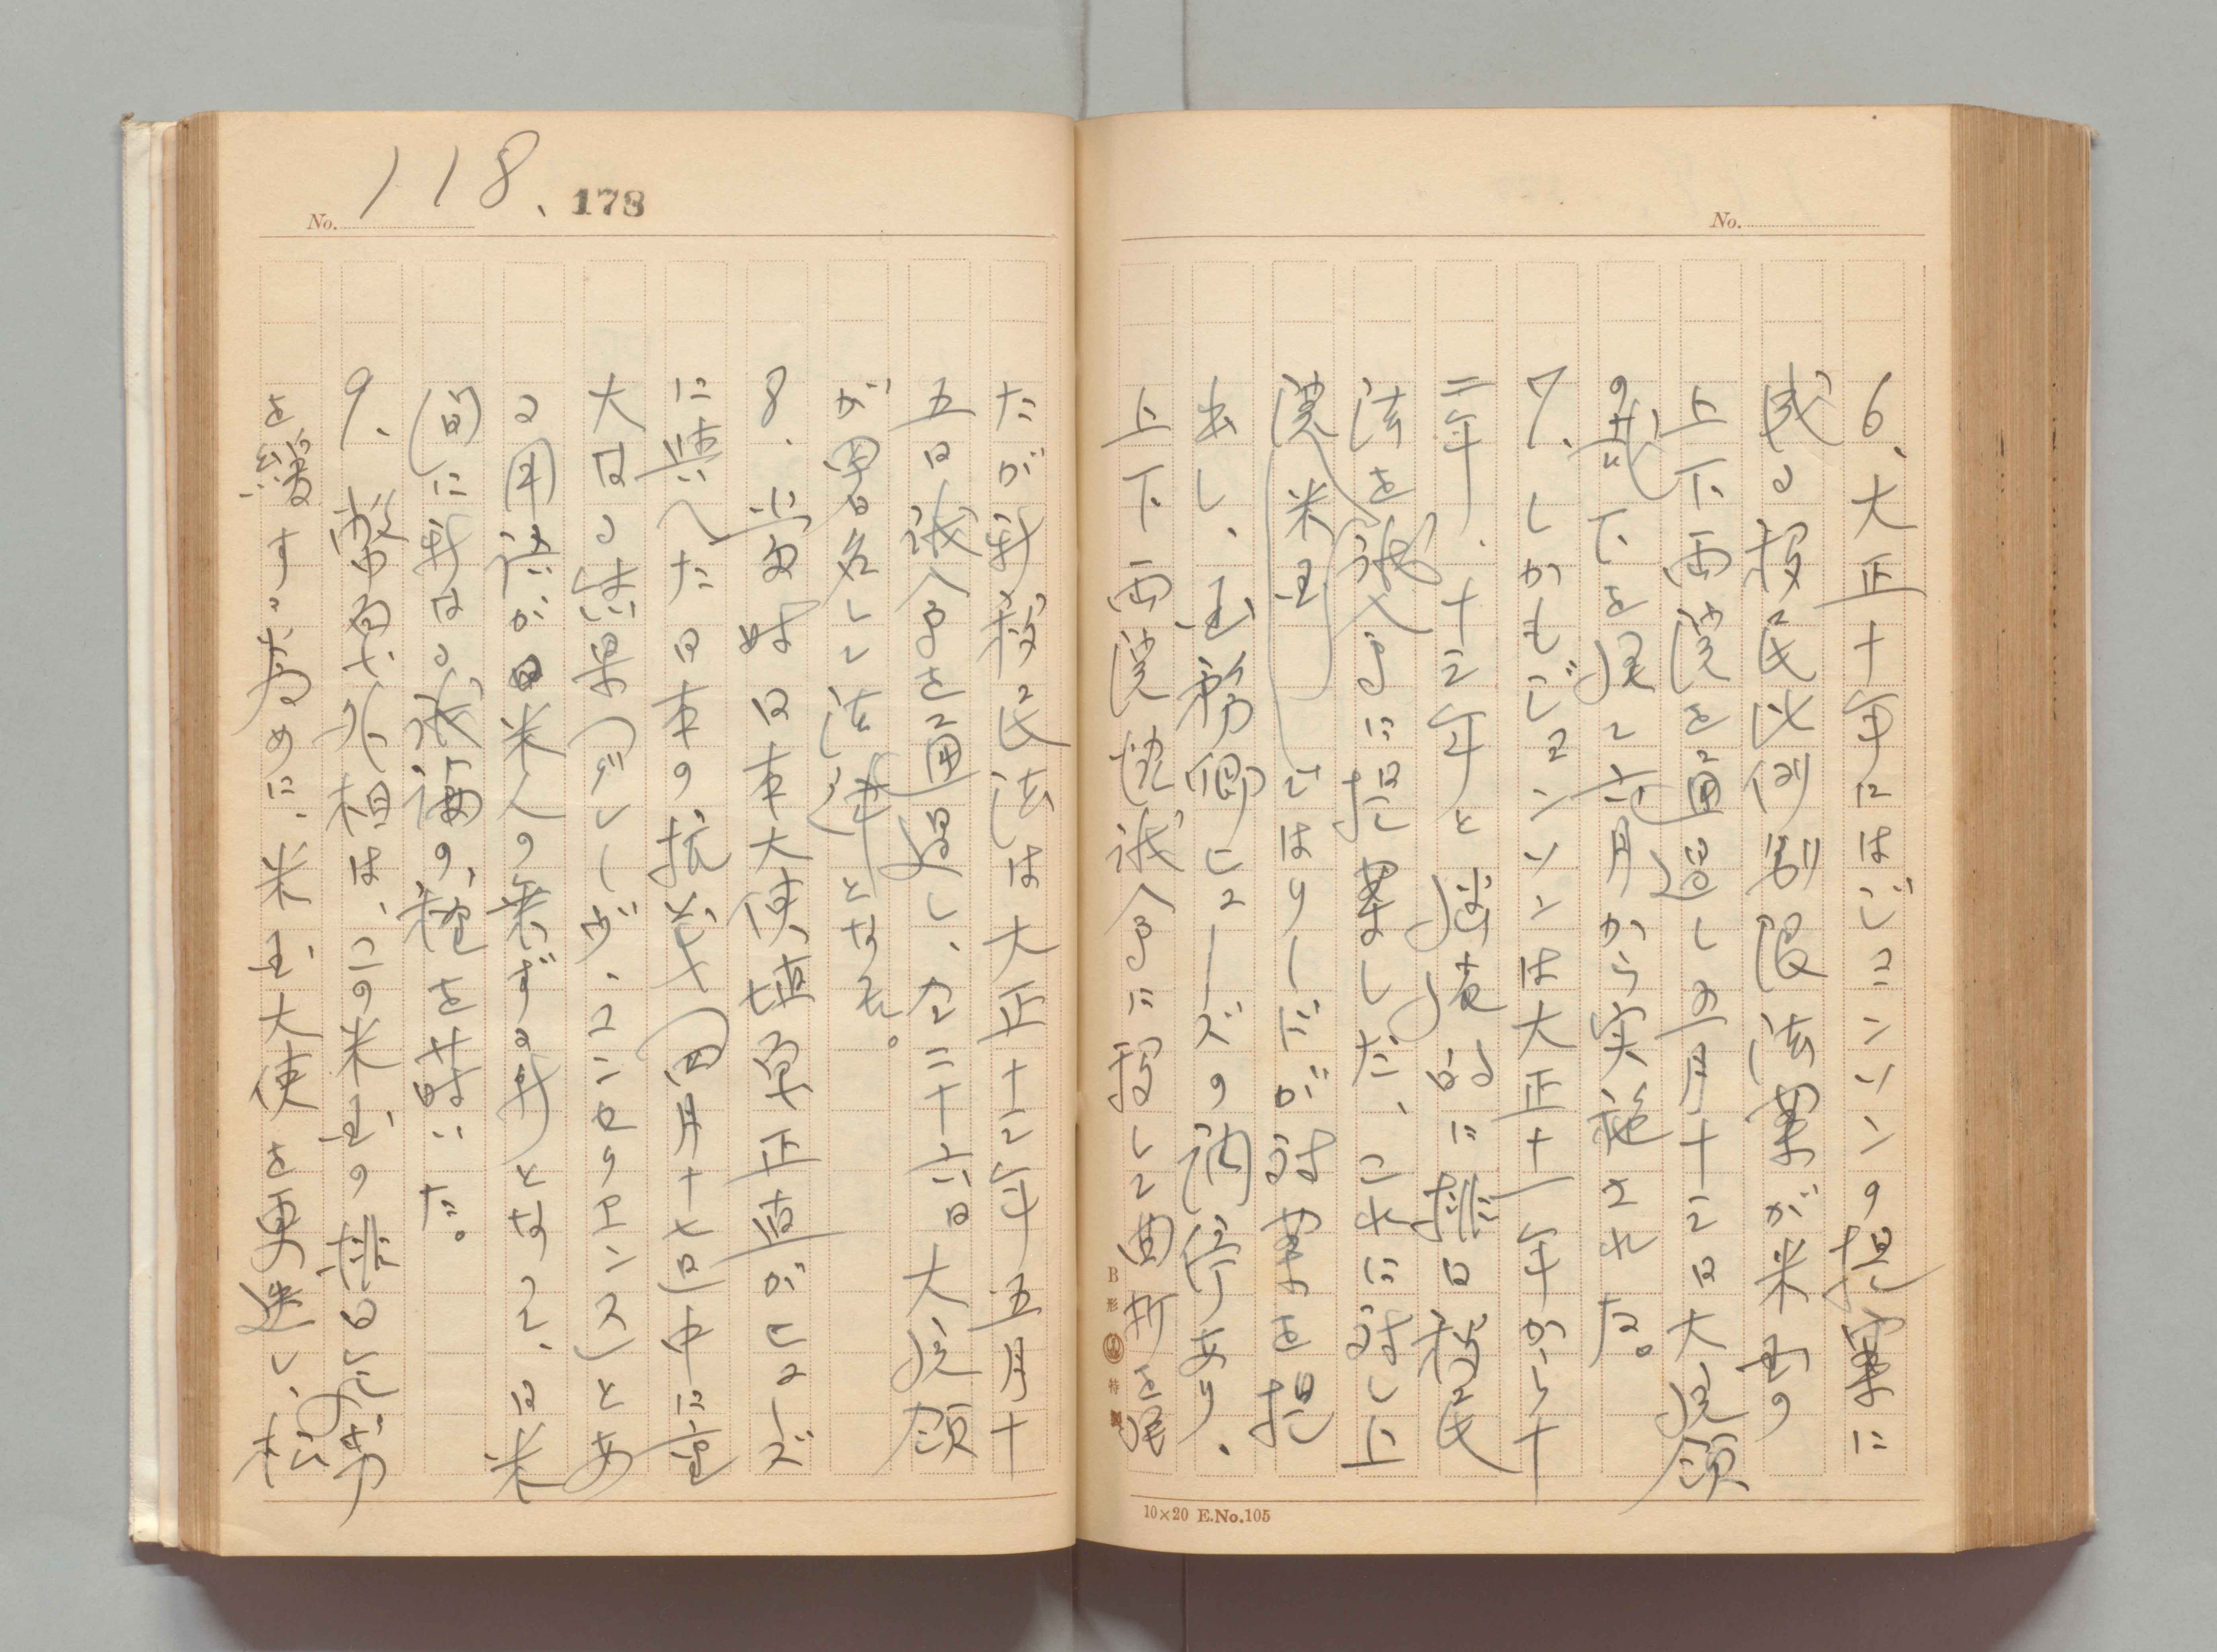 No.
6、大正十年にはジョンソンの提案に
成る移民比例制限法案が米国の
上下両院を通過し五月十二日大統領
の裁下を得て六月から実施された。
7、しかもジョンソンは大正十一年から十
二年、十三年と連続的に排日移民
法を議会に提案した、これに対し上
院(米国)ではリードが対案を提
出し、国務卿ヒューズの調停あり、
上下両院協議会に移して曲折を経
B形 特製
10×20 E.No.105
No. 118、 178
たが新移民法は大正十三年五月十
五日議会を通過し、仝二十六日大統領
が署名して法律となる。
8、当時日本大使埴原正直がヒューズ
に与へた日本の抗議(四月十七日)中に重
大なる結果(グレーヴ、コンセクエンス)とあ
る用語が日米人の策ずる所となって、日米
間に新なる議論の種を蒔いた。
9、幣原外相は、この米国の排日気勢
を緩す為めに、米国大使を更迭し、松